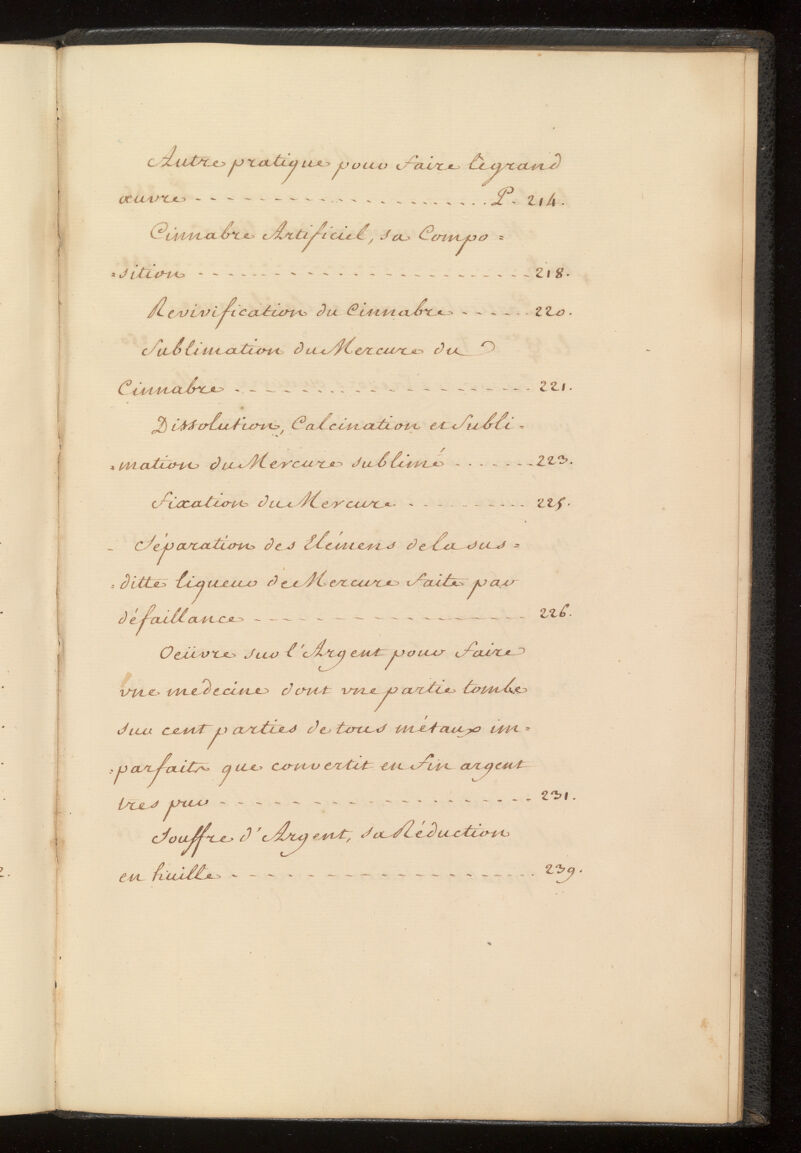 Autre pratique pour faire le grand
œuvre - - - - - - - - - - - - - - - - - - - P. 214.
Cinnabre Artificiel, sa Compo =
=sition - - - - - - - - - - - - - - - - - - - - 218.
Revivification du Cinnabre - - - - - - 220.
Sublimation du Mercure du
Cinnabre - - - - - - - - - - - - - - - - - - - 221.
Dissolution, Calcination et Subli =
=mation du Mercure sublimé - - - - - - - 223.
Fixation du Mercure - - - - - - - - - - 225.
Séparation des Elémens de la sus =
=ditte liqueur de Mercure faite par
défaillance - - - - - - - - - - - - - - - - - - 226.
Oeüvre sur l'Argent pour faire
vne medecine dont vne partie tombe
sur cent parties de tous métaux im =
=parfaits que convertit en fin argent
tres pur - - - - - - - - - - - - - - - - - - - - 231.
Souffre d'Argent, sa Réduction
en huille - - - - - - - - - - - - - - - - - - - 239.
2.